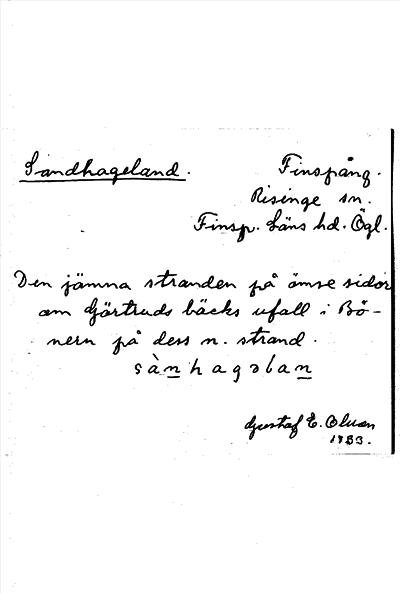 Sandhageland. Finspång.
Risinge sn.
Finsp. läns hd. Ögl.
Den jämna stranden på ömse sidor
om Gjärtruds bäcks utfall i Bö-
nern på dess n. strand.
sànhagəlan
Gustaf E. Olsson
1933.